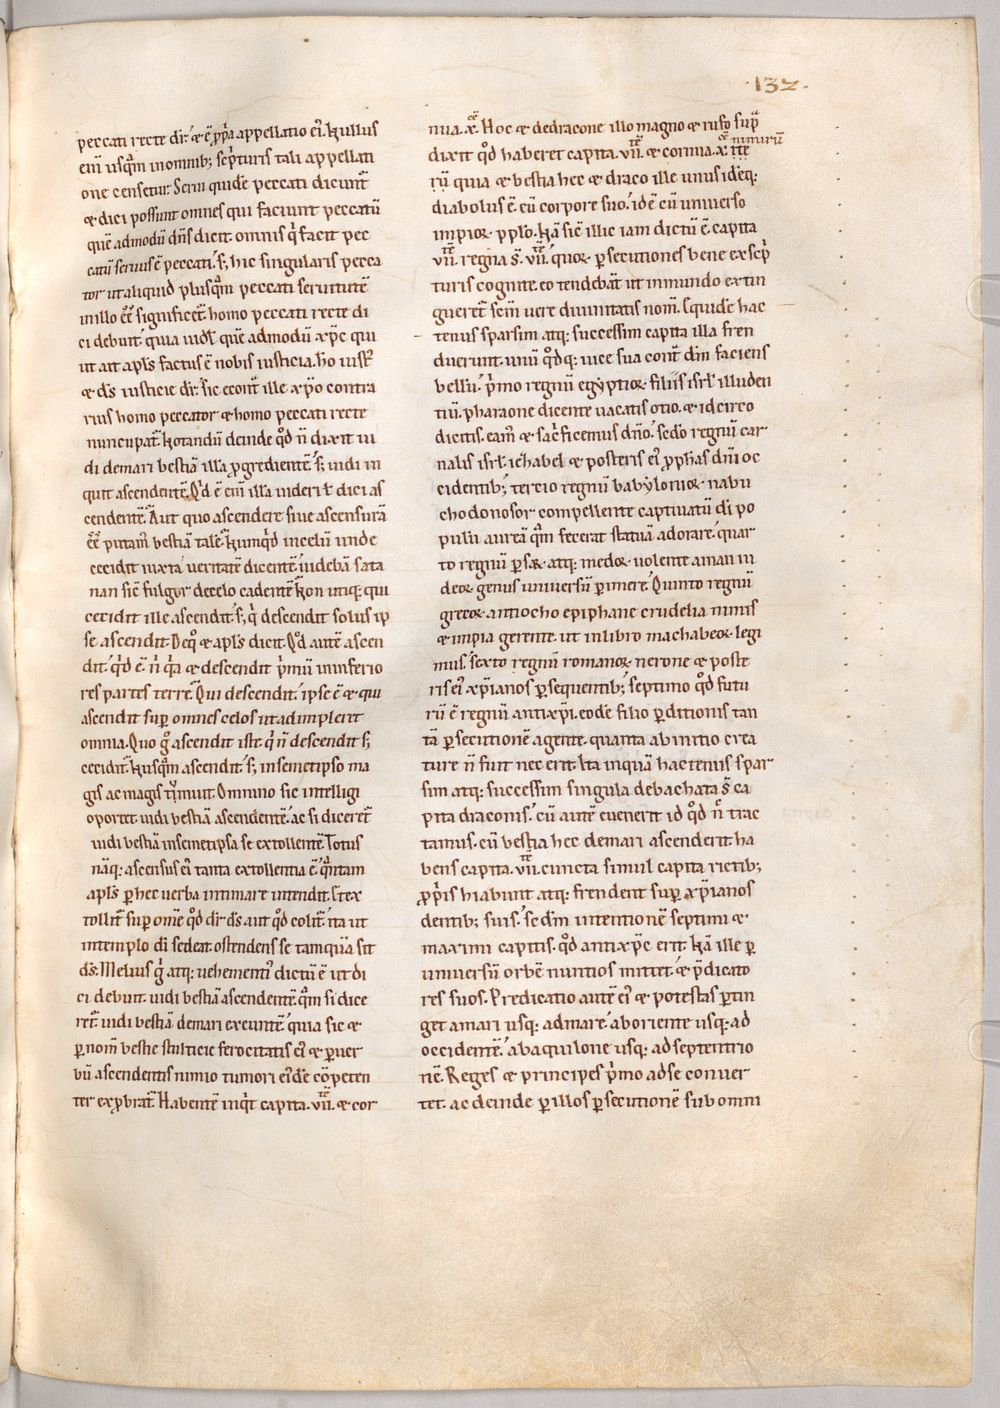 ·132·
peccati recte dr̄. ⁊ ē p̱p̱a appellatio ei᷒. Nullus
eni̅ usqm̄ in omnib; sc̱pturis tali appellati
one censetur. Serui quidē peccati dicunt̄
& dici possunt omnes qui faciunt peccatū
quē admodū dn̄s dicit. omnis q̇ facit pec
catū seruus ē peccati. s; hic singularis pecca
tor ut aliquid plusqm̄ peccati seruitutē
in illo ēē significet̄. homo peccati recte di
ci debuit. quia uidl̄. quē admodū xp̄c qui
ut ait apl̄s factus ē nobis iusticia. ho iust᷒
& ds̄ iusticie dr̄. sic econt̄ ille xp̄o contra
rius homo peccator & homo peccati recte
nuncupat̄. Notandū deinde qd̄ n̄ dixit ui
di de mari bestiā illā p̱gredientē. s; uidi in
quit ascendentē. Qd̄ ē eni̅ illā uideri ł dici as
cendentē. Aut quo ascendere siue ascensurā
ēē putam̄ bestiā talē. Numqd̄ in celū unde
cecidit iuxta ueritatē dicentē. uidebā sata
nan sic̄ fulgur de celo cadentē. Non utiq: qui
cecidit ille ascendit. s; q̇ descendit solus ip
se ascendit. Deq̊ & apl̄s dicit. Qd̄ autē ascen
dit. qd̄ ē. n̄ qa & descendit ṗmū in inferio
res partes terre. Qui descendit. ipse ē & qui
ascendit sup̱ omnes celos ut adimpleret
omnia. Quo g̊ ascendit iste. q̇ n̄ descendit s;
cecidit. Nusqm̄ ascendit. s; in semetipso ma
gis ac magis tumuit. Omnino sic intelligi
oportet uidi bestiā ascendentē. ac si diceret̄
uidi bestiā in semetipsa se extollentē. Totus
nāq: ascensus ei᷒ tanta extollentia ē. quātam
apl̄s p̱ hec uerba intimare intendit. Et ex
tollit̄ sup̱ omē qd̄ dr̄ ds̄ aut qd̄ colit̄. ita ut
in templo di̅ sedeat. ostendens se tamquā sit
ds̄. Melius g̊ atq: uehementi᷒ dictū ē ut di
ci debuit. uidi bestiā ascendentē. qm̄ si dice
ret̄ uidi bestiā de mari exeuntē. quia sic &
p̱ nom̄ bestie stulticie ferocitatis ei᷒ & p̱ uer
bū ascendentis nimio tumori ei᷒dē cōpeten
ter exp̱brat̄. Habentē inqt̄ capita .vii. & cor
nua .x. Hoc & de dracone illo magno & rufo sup̱
dixit qd̄ haberet capita .vii. & cornua .x. Ite
nimirū
rū quia & bestia hec & draco ille unus idēq:
diabolus ē. cū corpore suo. id ē cū uniuerso
impioꝝ pp̱lo. Nā sic̄ illic iam dictū ē. capita
.vii. regna s̄ .vii. quoꝝ p̱secutiones bene ex sc̱p
turis cognite. eo tendebāt ut in mundo extin
gueret̄ sem̄ uere diuinitatis nom̄. Equidē hac
tenus sparsim atq: successim capita illa fren
duerunt. unū qd̄q: uice sua cont̄ dm̄ faciens
bellū. P̱mo regnū egyptioꝝ filiis isrl̄ illuden
tiū. pharaone dicente uacatis otio. & idcirco
dicitis. eam᷒ & sac̱ficemus dn̄o. Sedo regnū car
nalis isrl̄. iezabel & posteris ei᷒ p̱phas dn̄i oc
cidentib; tercio regnū babylonioꝝ nabu
chodonosor compellente captiuatū di̅ po
pulū aureā qm̄ fecerat statuā adorare. quar
to regnū p̱saꝝ atq: medoꝝ uolente aman iu
deoꝝ genus uniuersū p̱imere. Quinto regnū
grecoꝝ antiocho epiphane crudelia nimis
& impia gerente. ut in libro machabeoꝝ legi
mus. sexto regnū romanoꝝ nerone & poste
ris ei᷒ xp̄ianos p̱sequentib; septimo qd̄ futu
rū ē regnū antixp̄i. eodē filio p̱ditionis tan
tā p̱secutionē agente. quanta ab initio crea
ture n̄ fuit nec erit. Ita inquā hactenus spar
sim atq: successim singula debachata s̄ ca
pita draconis. cū autē euenerit id qd̄ nc̄ trac
tamus. cū bestia hec de mari ascenderit ha
bens capita .vii. cuncta simul capita rictib;
p̱p̱iis hiabunt atq: frendent sup̱ xp̄ianos
dentib; suis. sedm̄ intentionē septimi &
maximi capitis. qd̄ antixp̄c erit. Nā ille p̱
uniuersū orbē nuntios mittet. & p̄dicato
res suos. Predicatio autē ei᷒ & potestas p̱tin
get a mari usq: ad mare. ab oriente usq: ad
occidentē. ab aquilone usq: ad septentrio
nē. Reges & principes p̱mo ad se conuer
tet. ac deinde p̱ illos p̱secutionē sub omni